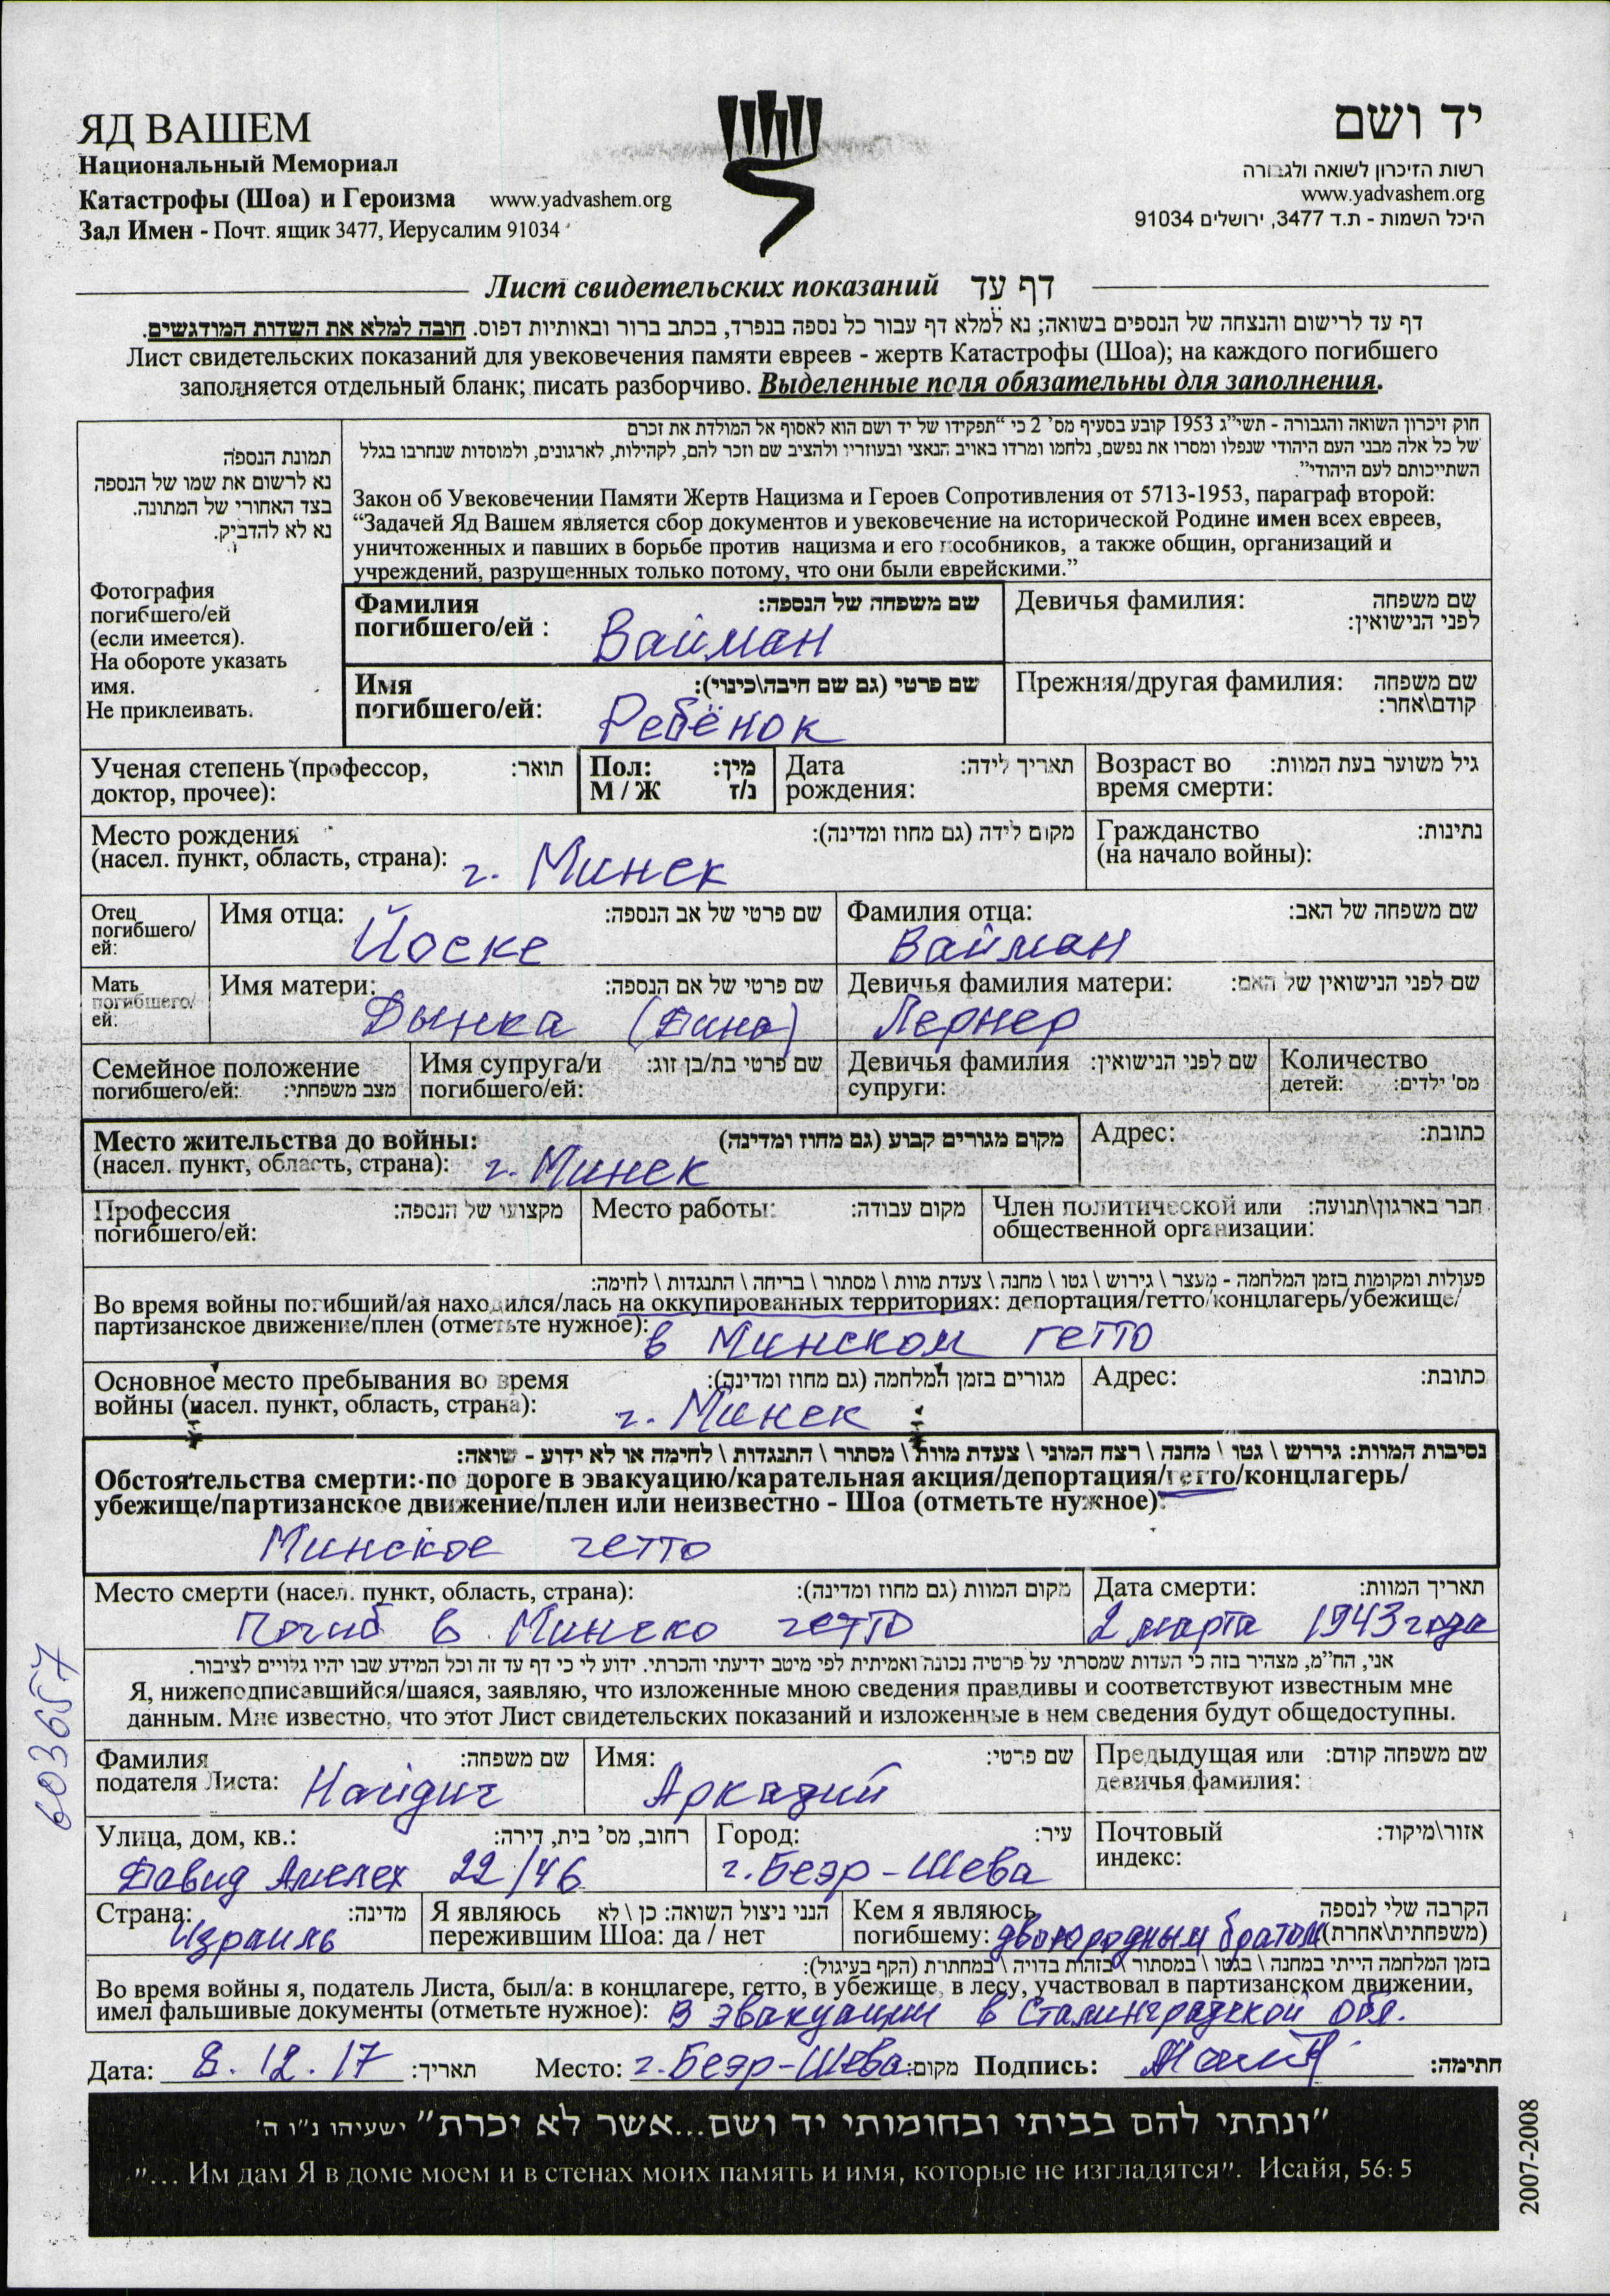 ЯД ВАШЕМ
Национальный Мемориал
Катастрофы (Шоа) и Героизма www.yadvashem.org
Зал Имен - Почт. ящик 3477, Иерусалим 91034
יד ושם
רשות הזיכרון לשואה ולגבורה
www.yadvashem.org
היכל השמות - ת.ד 3477, ירושלים 91034
Лист свидетельских показаний דף עד
דף עד לרישום והנצחה של הנספים בשואה; נא למלא דף עבור כל נספה בנפרד, בכתב ברור ובאותיות דפוס. חובה למלא את השדות המודגשים.
Лист свидетельских показаний для увековечения памяти евреев - жертв Катастрофы (Шоа); на каждого погибшего
заполняется отдельный бланк; писать разборчиво. Выделенные поля обязательны для заполнения.
תמונת הנספה
נא לרשום את שמו של הנספה
בצד האחורי של המתונה.
נא לא להדביק.
Фотография
погибшего/ей
(если имеется).
На обороте указать
имя.
Не приклеивать.
חוק זיכרון השואה והגבורה - תשי"ג 1953 קובע בסעיף מס' 2 כי "תפקידו של יד ושם הוא לאסוף אל המולדת את זכרם
של כל אלה מבני העם היהודי שנפלו ומסרו את נפשם, נלחמו ומרדו באויב הנאצי ובעוזריו ולהציב שם וזכר להם, לקהילות, לארגונים, ולמוסדות שנחרבו בגלל
השתייכותם לעם היהודי".
Закон об Увековечении Памяти Жертв Нацизма и Героев Сопротивления от 5713-1953, параграф второй:
“Задачей Яд Вашем является сбор документов и увековечение на исторической Родине имен всех евреев,
уничтоженных и павших в борьбе против нацизма и его пособников, а также общин, организаций и
учреждений, разрушенных только потому, что они были еврейскими.”
Фамилия שם משפחה של הנספה:
погибшего/ей : Вайман
Девичья фамилия: שם משפחה
לפני הנישואין:
Имя שם פרטי (גם שם חיבה\כינוי):
погибшего/ей: Ребёнок
Прежняя/другая фамилия: שם משפחה
קודם\אחר:
Ученая степень (профессор, תואר:
доктор, прочее):
Пол: מין:
М / Ж נ/ז
Дата תאריך לידה:
рождения:
Возраст во גיל משוער בעת המוות:
время смерти:
Место рождения מקום לידה (גם מחוז ומדינה):
(насел. пункт, область, страна): г. Минск
Гражданство נתינות:
(на начало войны):
Отец
погибшего/
ей:
Имя отца: שם פרטי של אב הנספה:
Йоске
Фамилия отца: שם משפחה של האב:
Вайман
Мать
погибшего/
ей:
Имя матери: שם פרטי של אם הנספה:
Дынка (Дина)
Девичья фамилия матери: שם לפני הנישואין של האם:
Лернер
Семейное положение
погибшего/ей: מצב משפחתי:
Имя супруга/и שם פרטי בת/בן זוג:
погибшего/ей:
Девичья фамилия שם לפני הנישואין:
супруги:
Количество
детей: מס' ילדים:
Место жительства до войны: מקום מגורים קבוע (גם מחוז ומדינה)
(насел. пункт, область, страна): г. Минск
Адрес: כתובת:
Профессия מקצועו של הנספה:
погибшего/ей:
Место работы: מקום עבודה:
Член политической или חבר בארגון\תנועה:
общественной организации:
פעולות ומקומות בזמן המלחמה - מעצר \ גירוש \ גטו \ מחנה \ צעדת מוות \ מסתור \ בריחה \ התנגדות \ לחימה:
Во время войны погибший/ая находился/лась на оккупированных территориях: депортация/гетто/концлагерь/убежище/
партизанское движение/плен (отметьте нужное): в Минском гетто
Основное место пребывания во время מגורים בזמן המלחמה (גם מחוז ומדינה):
войны (насел. пункт, область, страна): г. Минск
Адрес: כתובת:
נסיבות המוות: גירוש \ גטו \ מחנה \ רצח המוני \ צעדת מוות \ מסתור \ התנגדות \ לחימה או לא ידוע - שואה:
Обстоятельства смерти: по дороге в эвакуацию/карательная акция/депортация/гетто/концлагерь/
убежище/партизанское движение/плен или неизвестно - Шоа (отметьте нужное):
Минское гетто
Место смерти (насел. пункт, область, страна): מקום המוות (גם מחוז ומדינה):
Погиб в Минско гетто
Дата смерти: תאריך המוות:
2 марта 1943 года
אני, הח"מ, מצהיר בזה כי העדות שמסרתי על פרטיה נכונה ואמיתית לפי מיטב ידיעתי והכרתי. ידוע לי כי דף עד זה וכל המידע שבו יהיו גלויים לציבור.
Я, нижеподписавшийся/шаяся, заявляю, что изложенные мною сведения правдивы и соответствуют известным мне
данным. Мне известно, что этот Лист свидетельских показаний и изложенные в нем сведения будут общедоступны.
Фамилия שם משפחה:
подателя Листа: Найдич
Имя: שם פרטי:
Аркадий
Предыдущая или שם משפחה קודם:
девичья фамилия:
Улица, дом, кв.: רחוב, מס' בית, דירה:
Давид Амелех 22/46
Город: עיר:
г. Беэр-Шева
Почтовый אזור\מיקוד:
индекс:
Страна: מדינה:
Израиль
Я являюсь הנני ניצול השואה: כן \ לא
пережившим Шоа: да / нет
Кем я являюсь הקרבה שלי לנספה
погибшему: двоюродным братом (משפחתית\אחרת)
בזמן המלחמה הייתי במחנה \ בגטו \ במסתור \ בזהות בדויה \ במחתרת (הקף בעיגול):
Во время войны я, податель Листа, был/а: в концлагере, гетто, в убежище, в лесу, участвовал в партизанском движении,
имел фальшивые документы (отметьте нужное): в эвакуации в Сталинградской обл.
Дата: 8.12.17 תאריך: Место: г. Беэр-Шева מקום: Подпись: חתימה:
"ונתתי להם בביתי ובחומותי יד ושם...אשר לא יכרת" ישעיהו נ"ו ה'
"... Им дам Я в доме моем и в стенах моих память и имя, которые не изгладятся". Исайя, 56: 5
603657
2007-2008